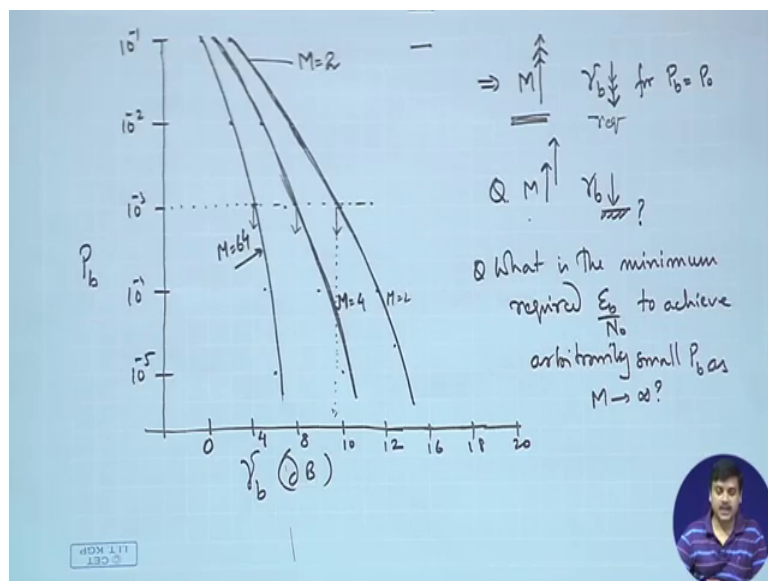 10⁻¹
10⁻²
10⁻³
10⁻⁴
10⁻⁵
P_b
M=2
M=64
M=4
M=2
0 4 8 10 12 16 18 20
γ_b (dB)
⇒ M↑ γ_b↓ for P_b = P_0
req
Q M↑ γ_b↓ ?
Q What is the minimum
required ε_b/N_0 to achieve
arbitrarily small P_b as
M → ∞?
© CET
I.I.T. KGP